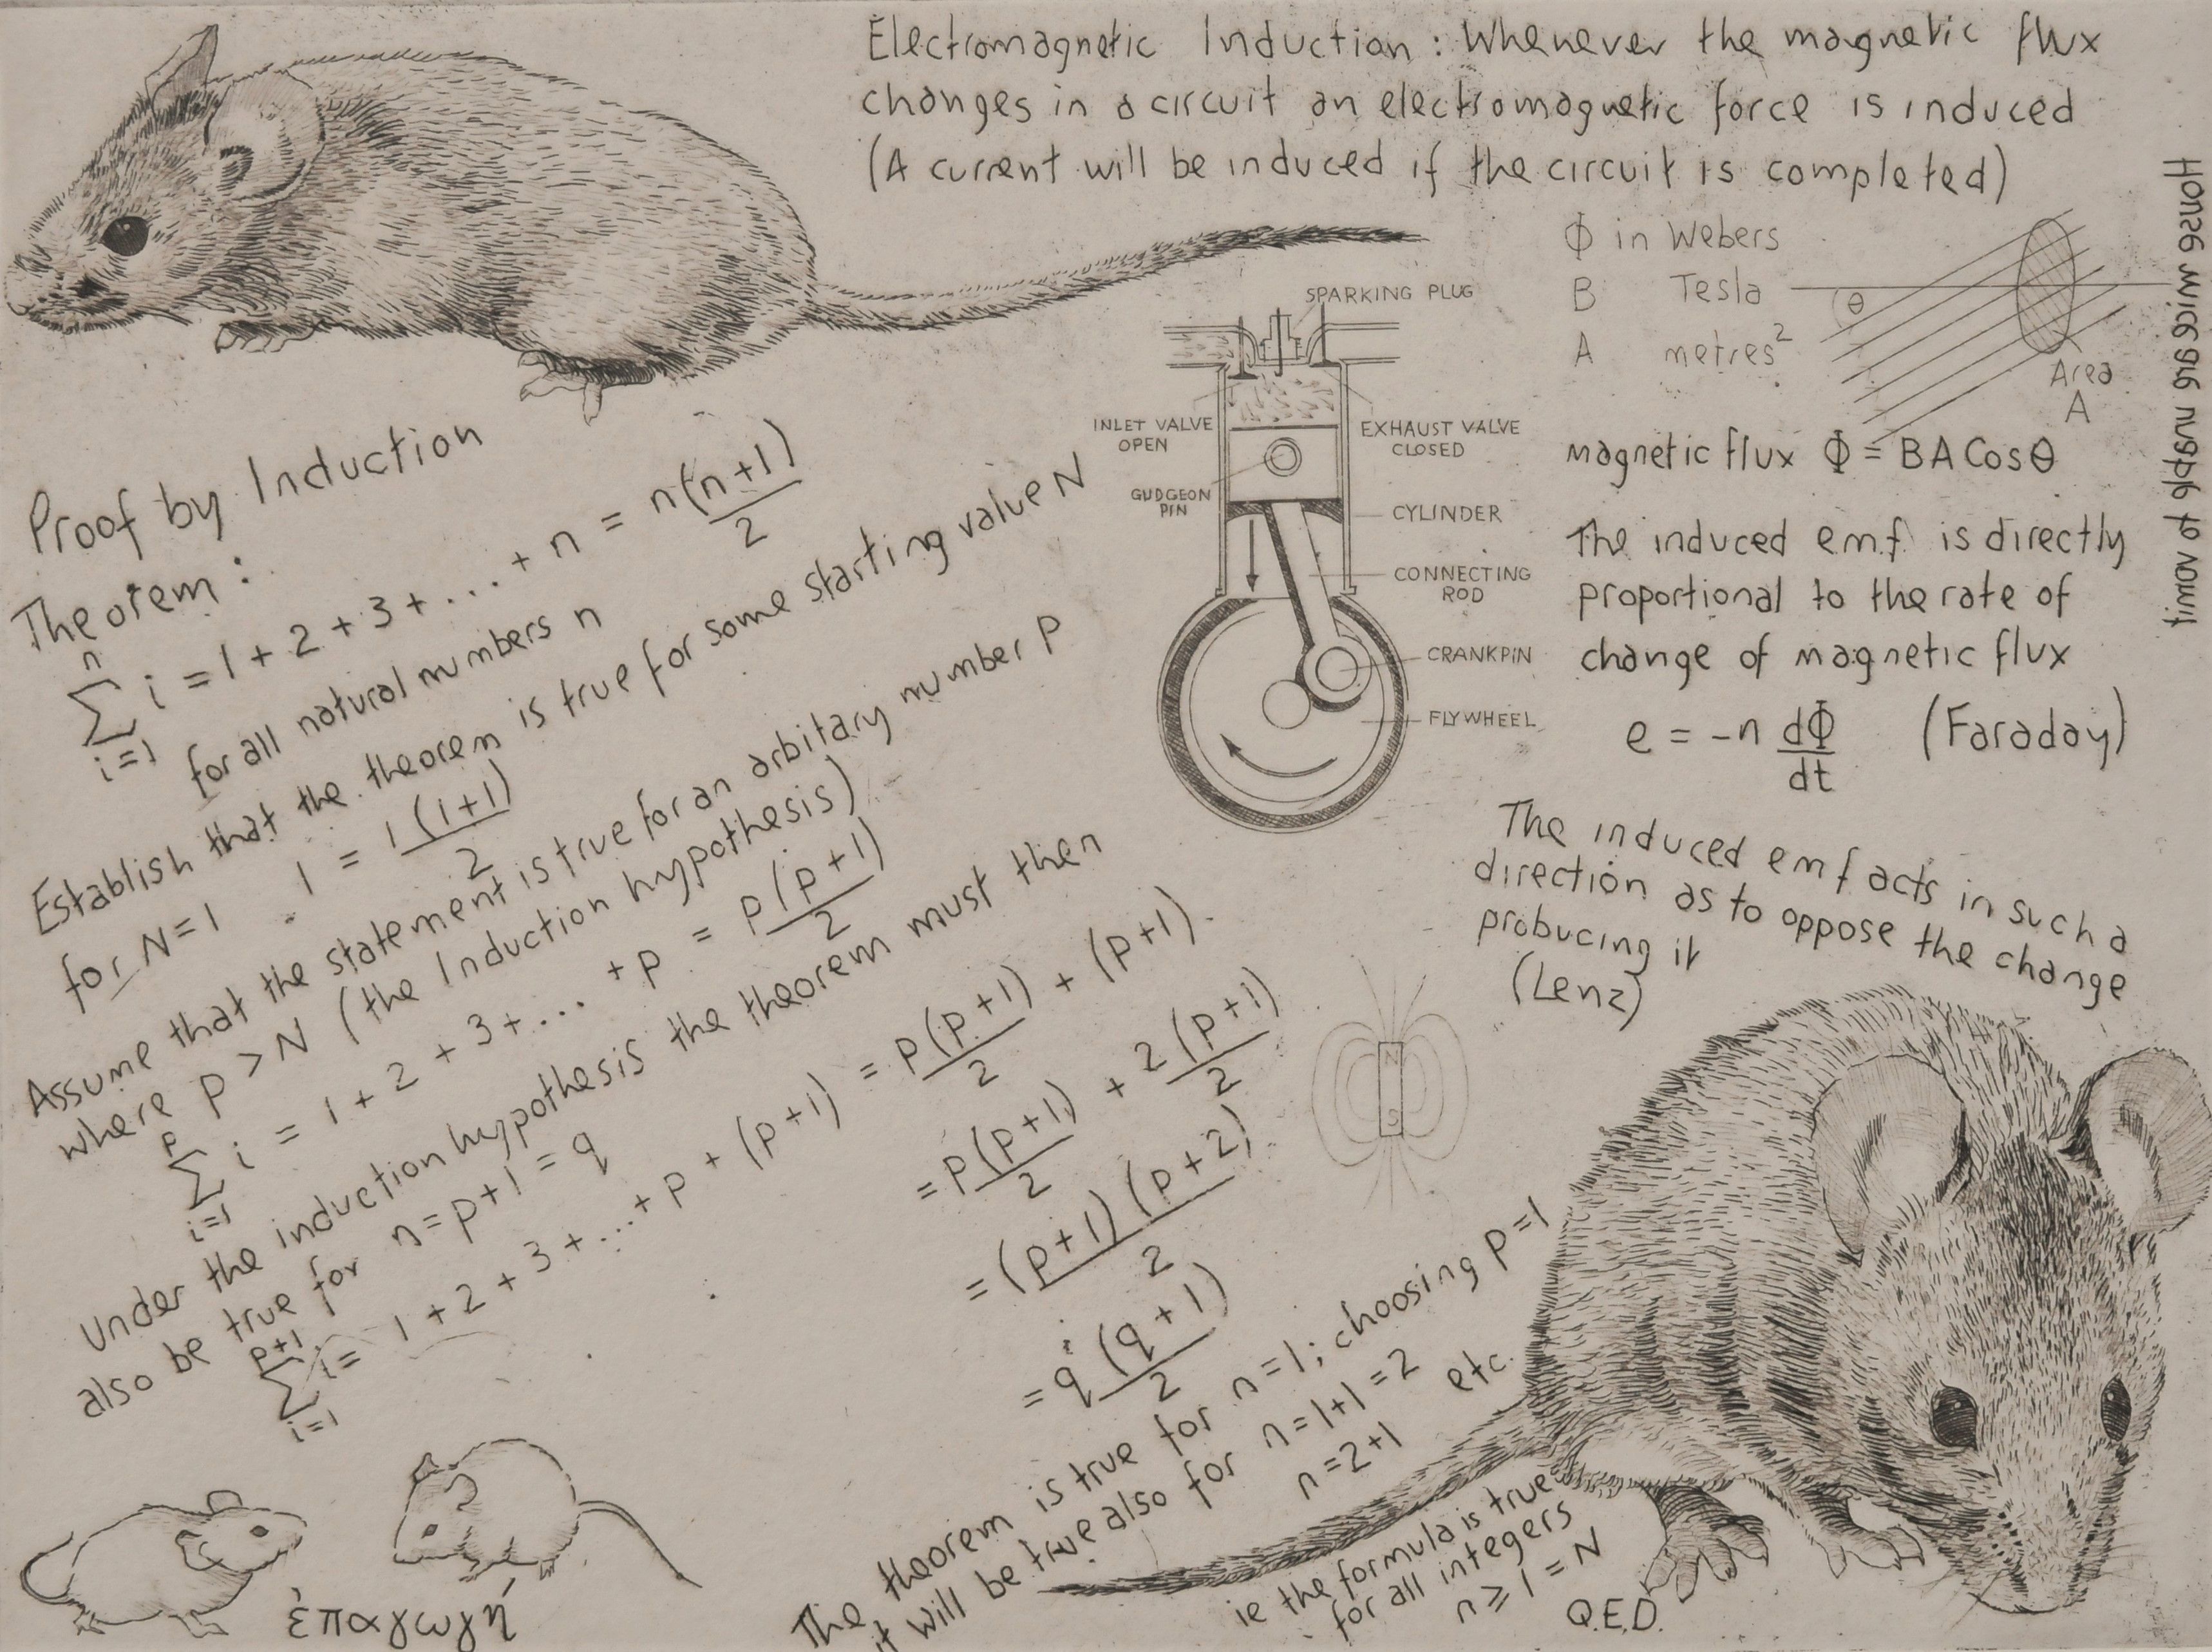 Electromagnetic Induction : Whenever the magnetic flux
changes in a circuit an electromagnetic force is induced
(A current will be induced if the circuit is completed)
Φ in Webers
B Tesla
A metres²
θ
Area
A
magnetic flux Φ = BA Cosθ
The induced e.m.f. is directly
proportional to the rate of
change of magnetic flux
e = -n dΦ/dt (Faraday)
The induced emf acts in such a
direction as to oppose the change
probucing it
(Lenz)
N
S
House mice are unable to vomit
SPARKING PLUG
INLET VALVE
OPEN
EXHAUST VALVE
CLOSED
GUDGEON
PIN
CYLINDER
CONNECTING
ROD
CRANKPIN
FLYWHEEL
Proof by Induction
Theorem :
n∑i=1 i = 1 + 2 + 3 + ... + n = n(n+1)/2
for all natural numbers n
Establish that the theorem is true for some starting value N
for N=1 1 = 1(1+1)/2
Assume that the statement is true for an arbitary number P
where p > N (the Induction hypothesis)
p∑i=1 i = 1 + 2 + 3 + ... + p = p(p+1)/2
Under the induction hypothesis the theorem must then
also be true for n = p+1 = q
p+1∑i=1 i = 1 + 2 + 3 + ... + p + (p+1) = p(p+1)/2 + (p+1).
= p(p+1)/2 + 2(p+1)/2
= (p+1)(p+2)/2
= q(q+1)/2
The theorem is true for n=1; choosing p=1
it will be true also for n=1+1=2
n=2+1 etc.
ie the formula is true
for all integers
n ≥ 1 = N
Q.E.D.
ἐπαγωγή